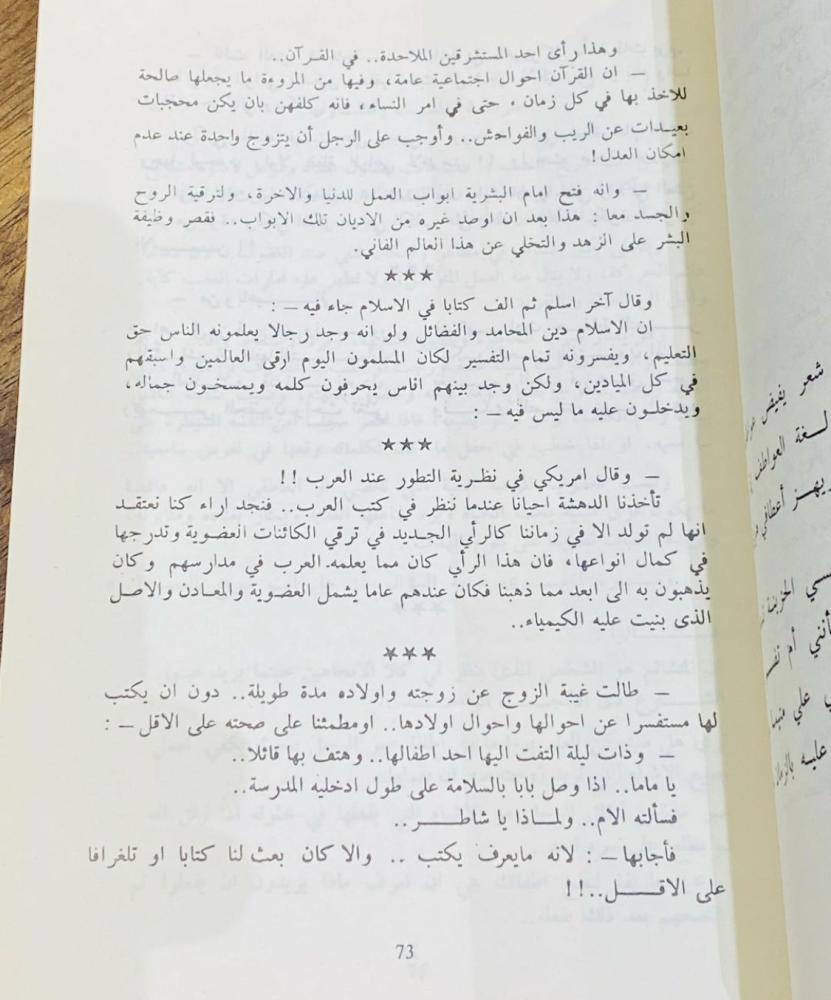 وهذا رأى احد المستشرقين الملاحدة.. في القرآن..
— ان القرآن احوال اجتماعية عامة، وفيها من المروءة ما يجعلها صالحة
للاخذ بها في كل زمان، حتى في امر النساء، فانه كلفهن بان يكن محجبات
بعيدات عن الريب والفواحش.. وأوجب على الرجل أن يتزوج واحدة عند عدم
امكان العدل!
— وانه فتح امام البشرية ابواب العمل للدنيا والاخرة، ولترقية الروح
والجسد معا: هذا بعد ان اوصد غيره من الاديان تلك الابواب.. فقصر وظيفة
البشر على الزهد والتخلي عن هذا العالم الفاني.
★★★
وقال آخر اسلم ثم الف كتابا في الاسلام جاء فيه —:
ان الاسلام دين المحامد والفضائل ولو انه وجد رجالا يعلمونه الناس حق
التعليم، ويفسرونه تمام التفسير لكان المسلمون اليوم ارقى العالمين واسبقهم
في كل الميادين، ولكن وجد بينهم اناس يحرفون كلمه ويمسخون جماله،
ويدخلون عليه ما ليس فيه —:
★★★
— وقال امريكي في نظرية التطور عند العرب!!
تأخذنا الدهشة احيانا عندما ننظر في كتب العرب.. فنجد اراء كنا نعتقد
انها لم تولد الا في زماننا كالرأي الجديد في ترقي الكائنات العضوية وتدرجها
في كمال انواعها، فان هذا الرأي كان مما يعلمه العرب في مدارسهم وكان
يذهبون به الى ابعد مما ذهبنا فكان عندهم عاما يشمل العضوية والمعادن والاصل
الذى بنيت عليه الكيمياء..
★★★
— طالت غيبة الزوج عن زوجته واولاده مدة طويلة.. دون ان يكتب
لها مستفسرا عن احوالها واحوال اولادها.. اومطمئنا على صحته على الاقل —:
— وذات ليلة التفت اليها احد اطفالها.. وهتف بها قائلا..
يا ماما.. اذا وصل بابا بالسلامة على طول ادخليه المدرسة..
فسألته الام.. ولمـــاذا يا شاطـــــر..
فأجابها —: لانه مايعرف يكتب .. والا كان بعث لنا كتابا او تلغرافا
على الاقـــــل..!!
73
شعر يفيض
لغة العواطف
يهز أعطافي
الحزينة
أم
علي
عليه